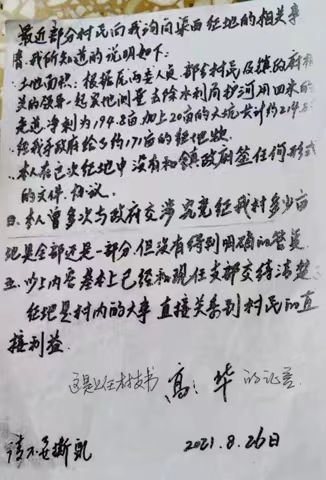 最近部分村民向我询问渠西征地的相关事
情、我所知道的说明如下:
土地面积:根据尾两委人员部分村民及镇政府相
关的领导一起实地测量去除水利局护河用四米的
走道净剩为194.8亩加上20亩的大坑共计约214.8
经我手政府给了约171亩的征地款.
本人在已次征地中没有和镇政府签任何形式
的文件.协议.
四、本人曾多次与政府交涉究竟征我村多少亩
地是全部还是一部分.但没有得到明确的答复.
五、以上内容基本上已经和现任支部交待清楚了
征地是村内的大事直接关系到村民的直
接利益.
这是上任村支书高:华的证言.
请不要撕乱 2021.8.26日